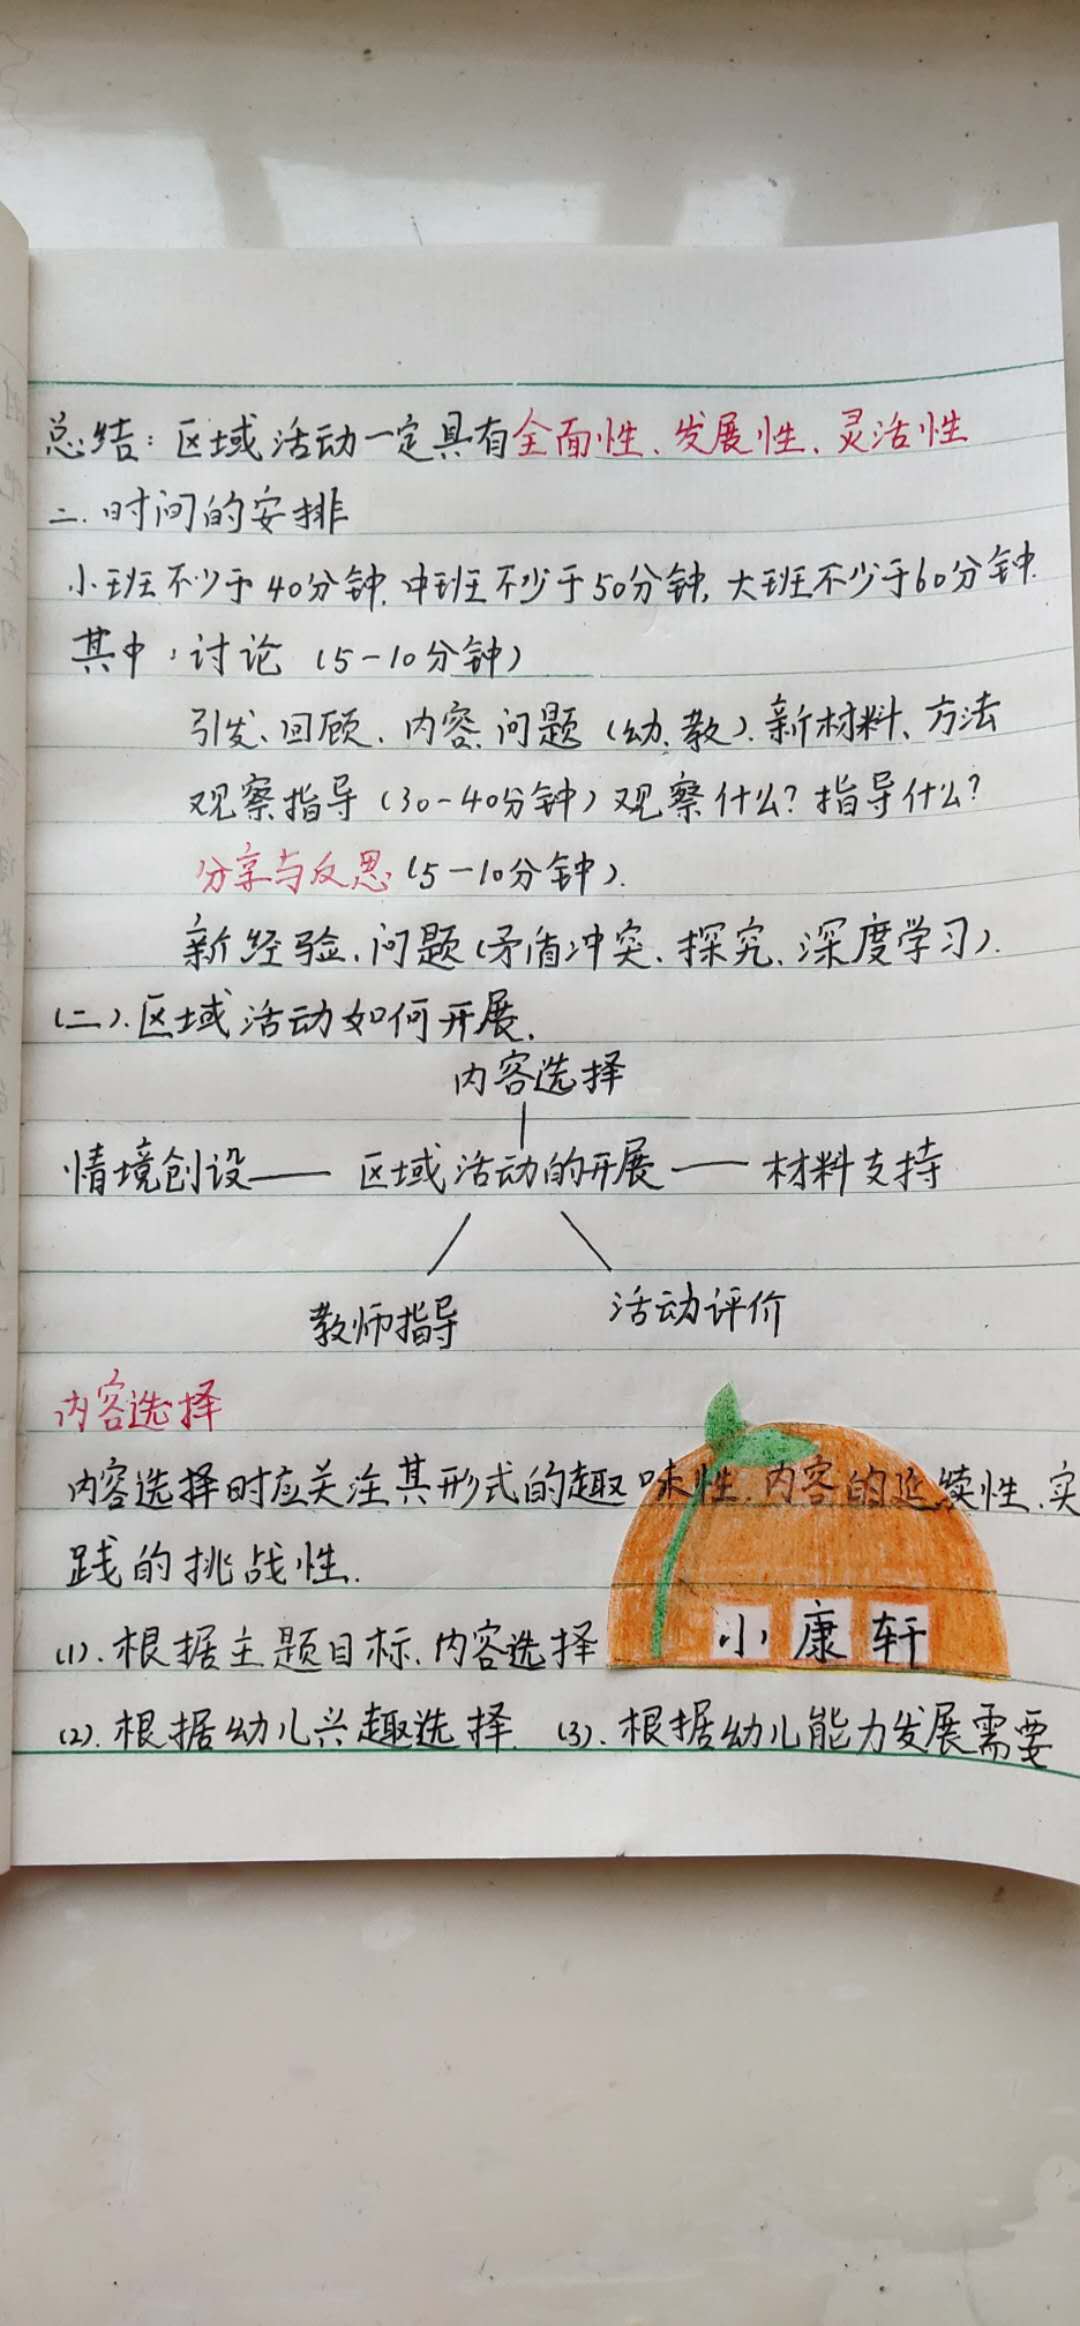 总结：区域活动一定具有全面性、发展性、灵活性
二.时间的安排
小班不少于40分钟.中班不少于50分钟,大班不少于60分钟.
其中：讨论（5-10分钟）
引发、回顾、内容、问题（幼、教）、新材料、方法
观察指导（30-40分钟）观察什么？指导什么？
分享与反思（5-10分钟）.
新经验、问题（矛盾冲突、探究、深度学习）.
（二）.区域活动如何开展.
内容选择
情境创设——区域活动的开展——材料支持
教师指导 活动评价
内容选择
内容选择时应关注其形式的趣味性.内容的延续性.实
践的挑战性.
(1).根据主题目标.内容选择
小康轩
(2).根据幼儿兴趣选择. (3).根据幼儿能力发展需要